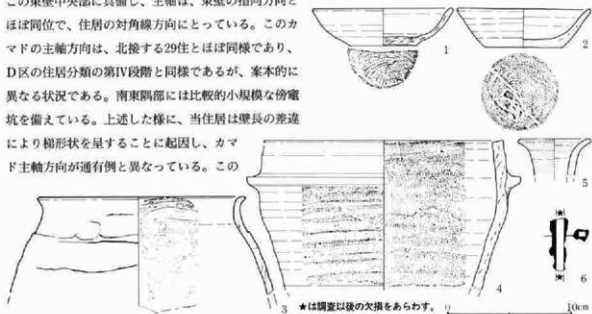 この東壁中央部に具備し、主軸は、東壁の指向方向と
ほぼ同位で、住居の対角線方向にとっている。このカ
マドの主軸方向は、北接する29住とほぼ同様であり、
D区の住居分類の第Ⅳ段階と同様であるが、案本的に
異なる状況である。南東隅部には比較的小規模な傍竈
坑を備えている。上述した様に、当住居は壁長の差違
により梯形状を呈することに起因し、カマ
ド主軸方向が通有例と異なっている。この
1
2
3
4
5
6
★は調査以後の欠損をあらわす。
0 10cm